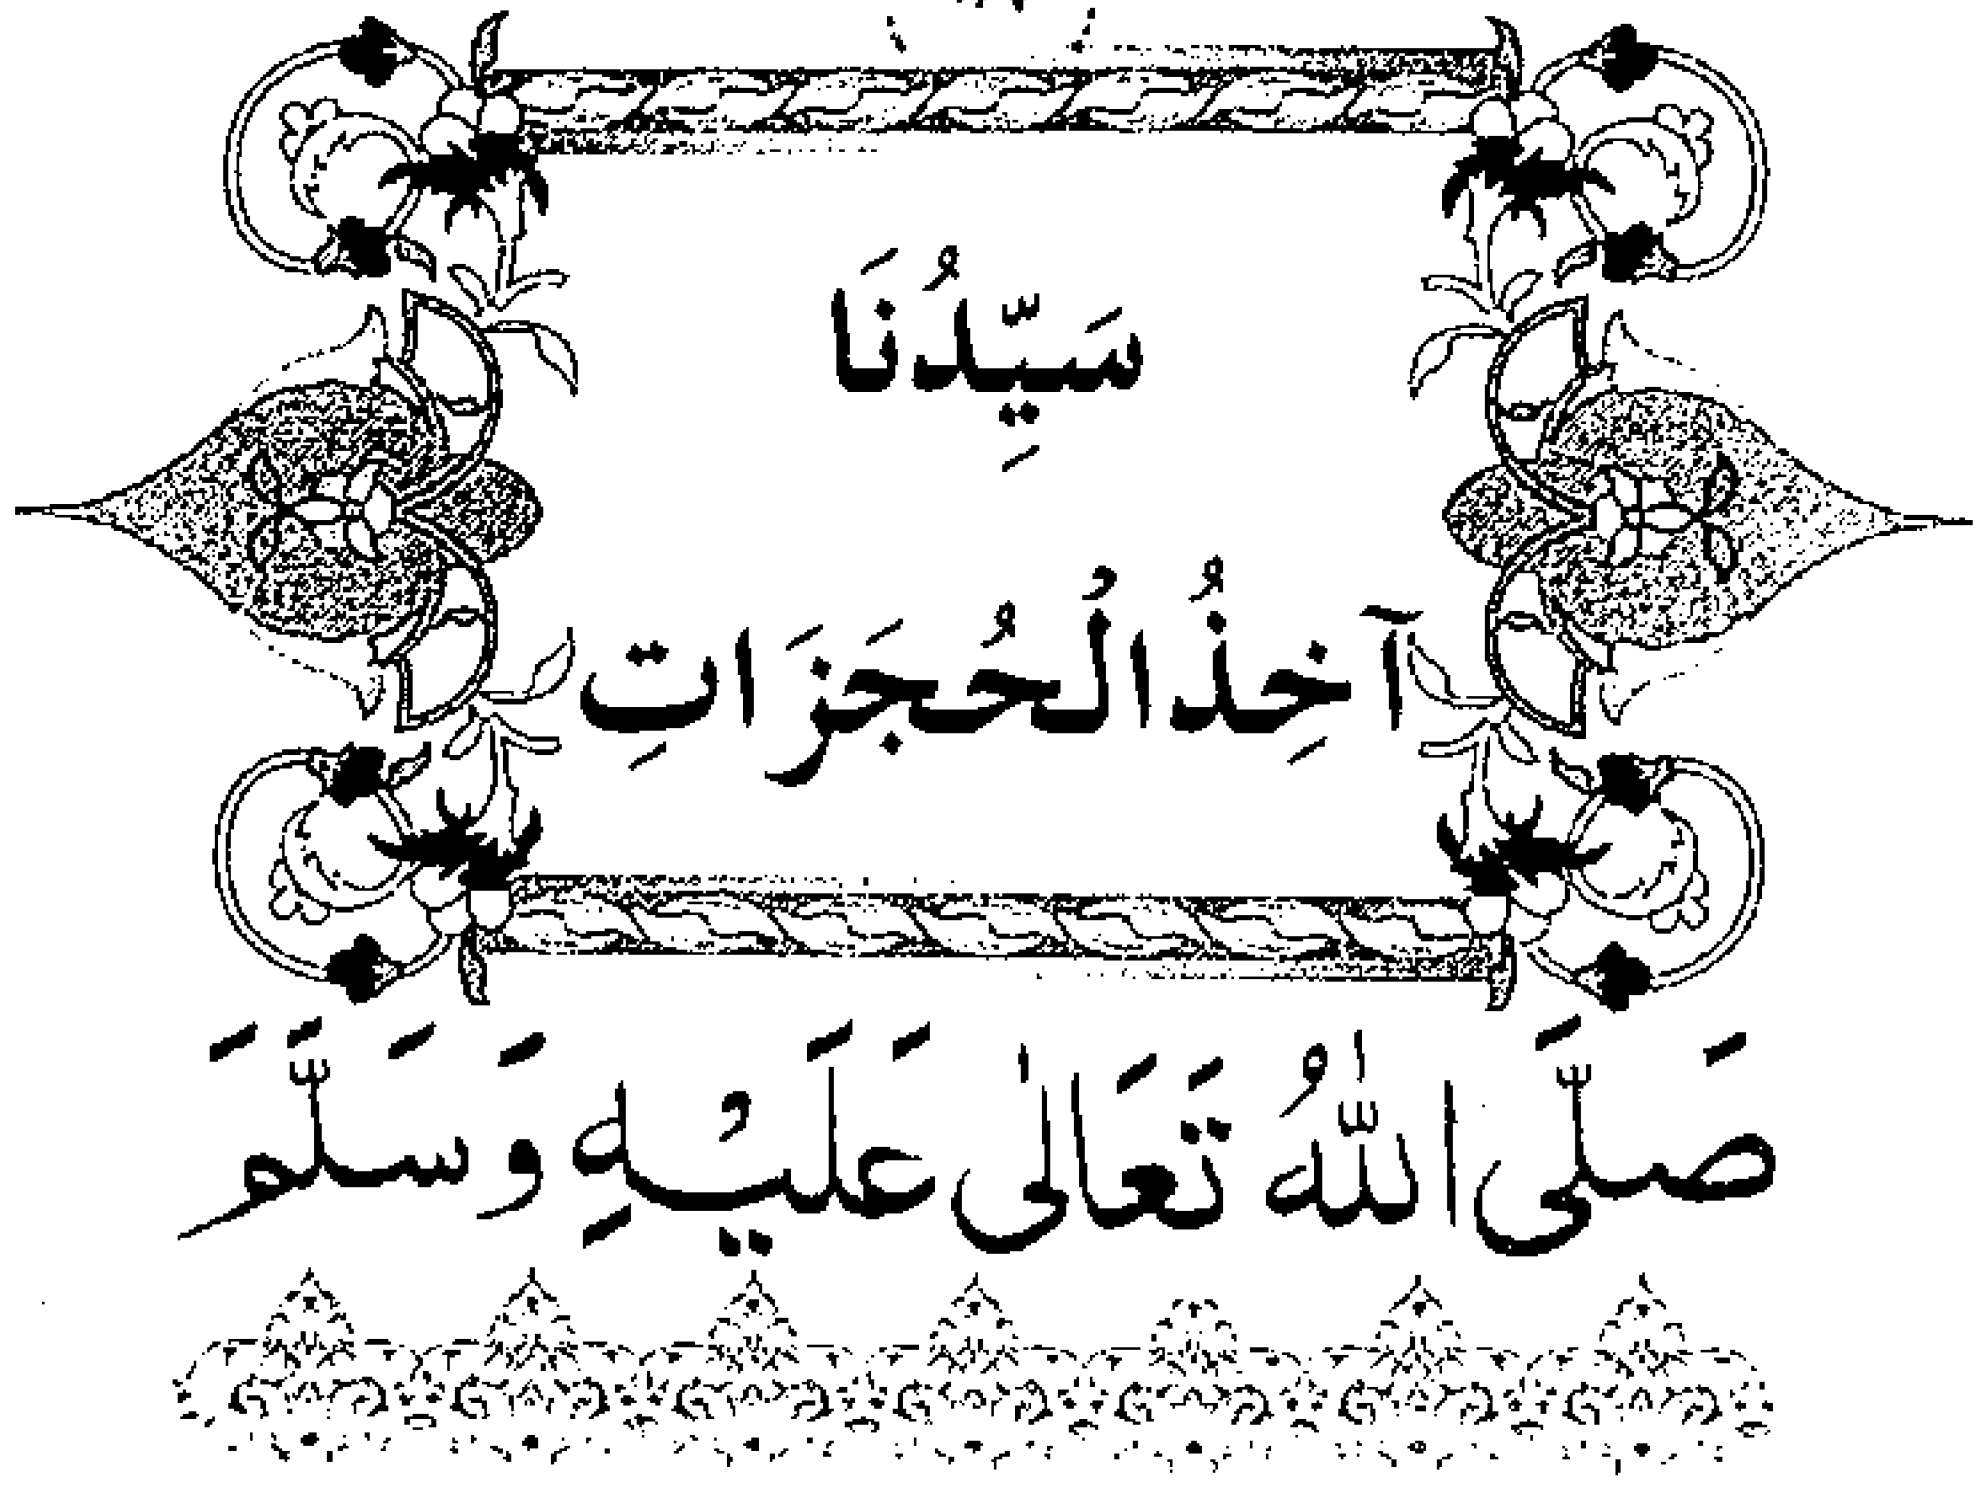 سَيِّدُنَا
آخِذُ الْحُجَزَاتِ
صَلَّى اللّٰهُ تَعَالٰى عَلَيْهِ وَسَلَّمَ